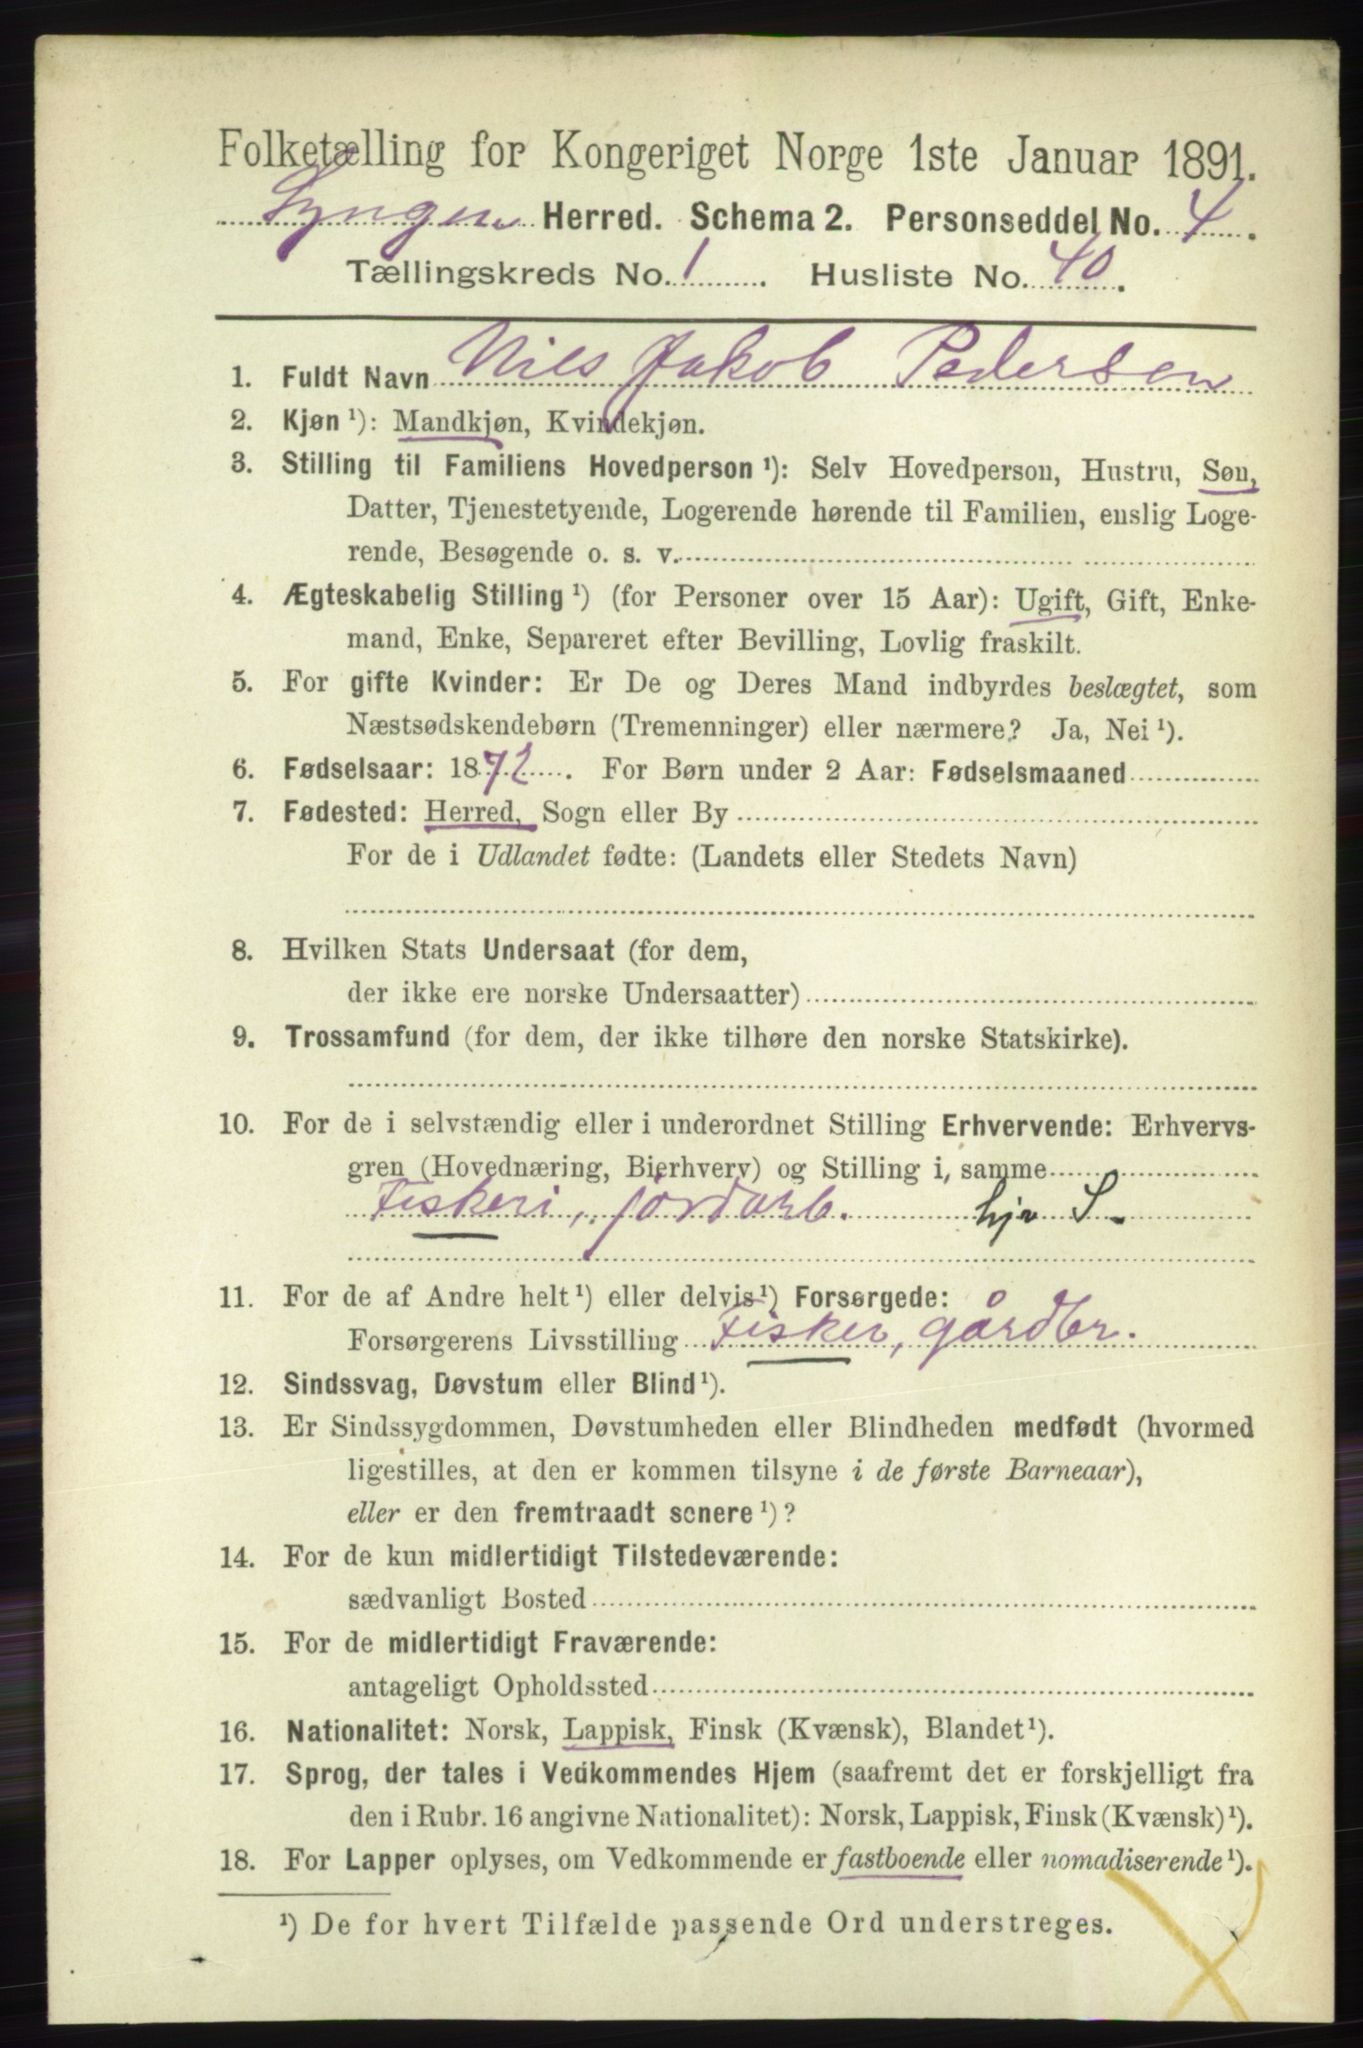 Folketælling for Kongeriget Norge 1ste Januar 1891.
Lyngen Herred. Schema 2. Personseddel No. 4.
Tællingskreds No. 1. Husliste No. 40.
1. Fuldt Navn Nils Jakob Pedersen
2. Kjøn ¹): Mandkjøn, Kvindekjøn.
3. Stilling til Familiens Hovedperson ¹): Selv Hovedperson, Hustru, Søn,
Datter, Tjenestetyende, Logerende hørende til Familien, enslig Loge-
rende, Besøgende o. s. v.
4. Ægteskabelig Stilling ¹) (for Personer over 15 Aar): Ugift, Gift, Enke-
mand, Enke, Separeret efter Bevilling, Lovlig fraskilt.
5. For gifte Kvinder: Er De og Deres Mand indbyrdes beslægtet, som
Næstsødskendebørn (Tremenninger) eller nærmere? Ja, Nei ¹).
6. Fødselsaar: 1872. For Børn under 2 Aar: Fødselsmaaned
7. Fødested: Herred, Sogn eller By
For de i Udlandet fødte: (Landets eller Stedets Navn)
8. Hvilken Stats Undersaat (for dem,
der ikke ere norske Undersaatter)
9. Trossamfund (for dem, der ikke tilhøre den norske Statskirke).
10. For de i selvstændig eller i underordnet Stilling Erhvervende: Erhvervs-
gren (Hovednæring, Bierhverv) og Stilling i samme
Fiskeri, jordarb. hjr S.
11. For de af Andre helt ¹) eller delvis ¹) Forsørgede:
Forsørgerens Livsstilling Fisker, gårdbr.
12. Sindssvag, Døvstum eller Blind ¹).
13. Er Sindssygdommen, Døvstumheden eller Blindheden medfødt (hvormed
ligestilles, at den er kommen tilsyne i de første Barneaar),
eller er den fremtraadt senere ¹)?
14. For de kun midlertidigt Tilstedeværende:
sædvanligt Bosted
15. For de midlertidigt Fraværende:
antageligt Opholdssted
16. Nationalitet: Norsk, Lappisk, Finsk (Kvænsk), Blandet ¹).
17. Sprog, der tales i Vedkommendes Hjem (saafremt det er forskjelligt fra
den i Rubr. 16 angivne Nationalitet): Norsk, Lappisk, Finsk (Kvænsk) ¹).
18. For Lapper oplyses, om Vedkommende er fastboende eller nomadiserende ¹).
¹) De for hvert Tilfælde passende Ord understreges.